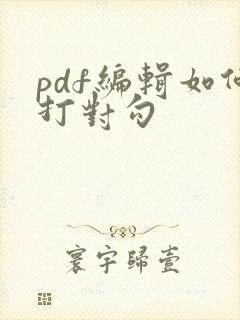 pdf編輯如何
打對勾
寰宇歸壹